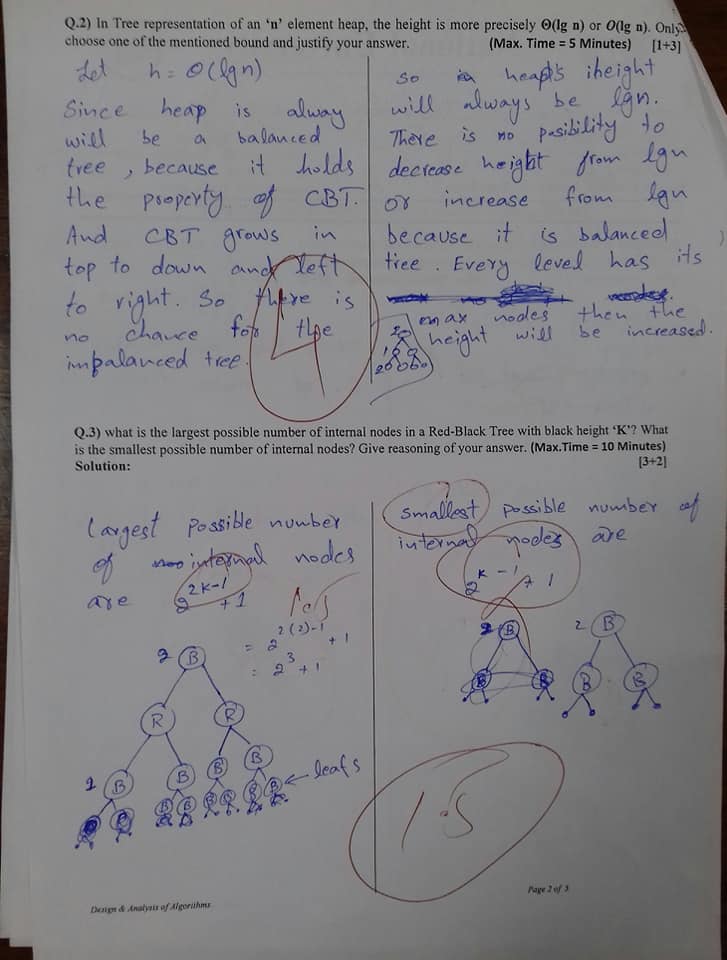 Q.2) In Tree representation of an ‘n’ element heap, the height is more precisely Θ(lg n) or O(lg n). Only
choose one of the mentioned bound and justify your answer. (Max. Time = 5 Minutes) [1+3]
Let h = Θ(lgn)
Since heap is alway
will be a balanced
tree, because it holds
the property of CBT.
And CBT grows in
top to down and left
to right. So there is
no chance for the
imbalanced tree.
4
So heap's height
will always be lgn.
There is no posibility to
decrease height from lgn
or increase from lgn
because it is balanced
tree. Every level has its
max nodes then the
height will be increased.
Q.3) what is the largest possible number of internal nodes in a Red-Black Tree with black height ‘K’? What
is the smallest possible number of internal nodes? Give reasoning of your answer. (Max.Time = 10 Minutes)
Solution: [3+2]
Largest possible number
of internal nodes
are 2^2K-1 + 1
= 2^2(2)-1 + 1
= 2^3 + 1
2 B
R R
1 B B B B
leafs
smallest possible number of
internal nodes are
2^K-1 + 1
2 B
B B
2 B
B B
1.5
Page 2 of 3
Design & Analysis of Algorithms